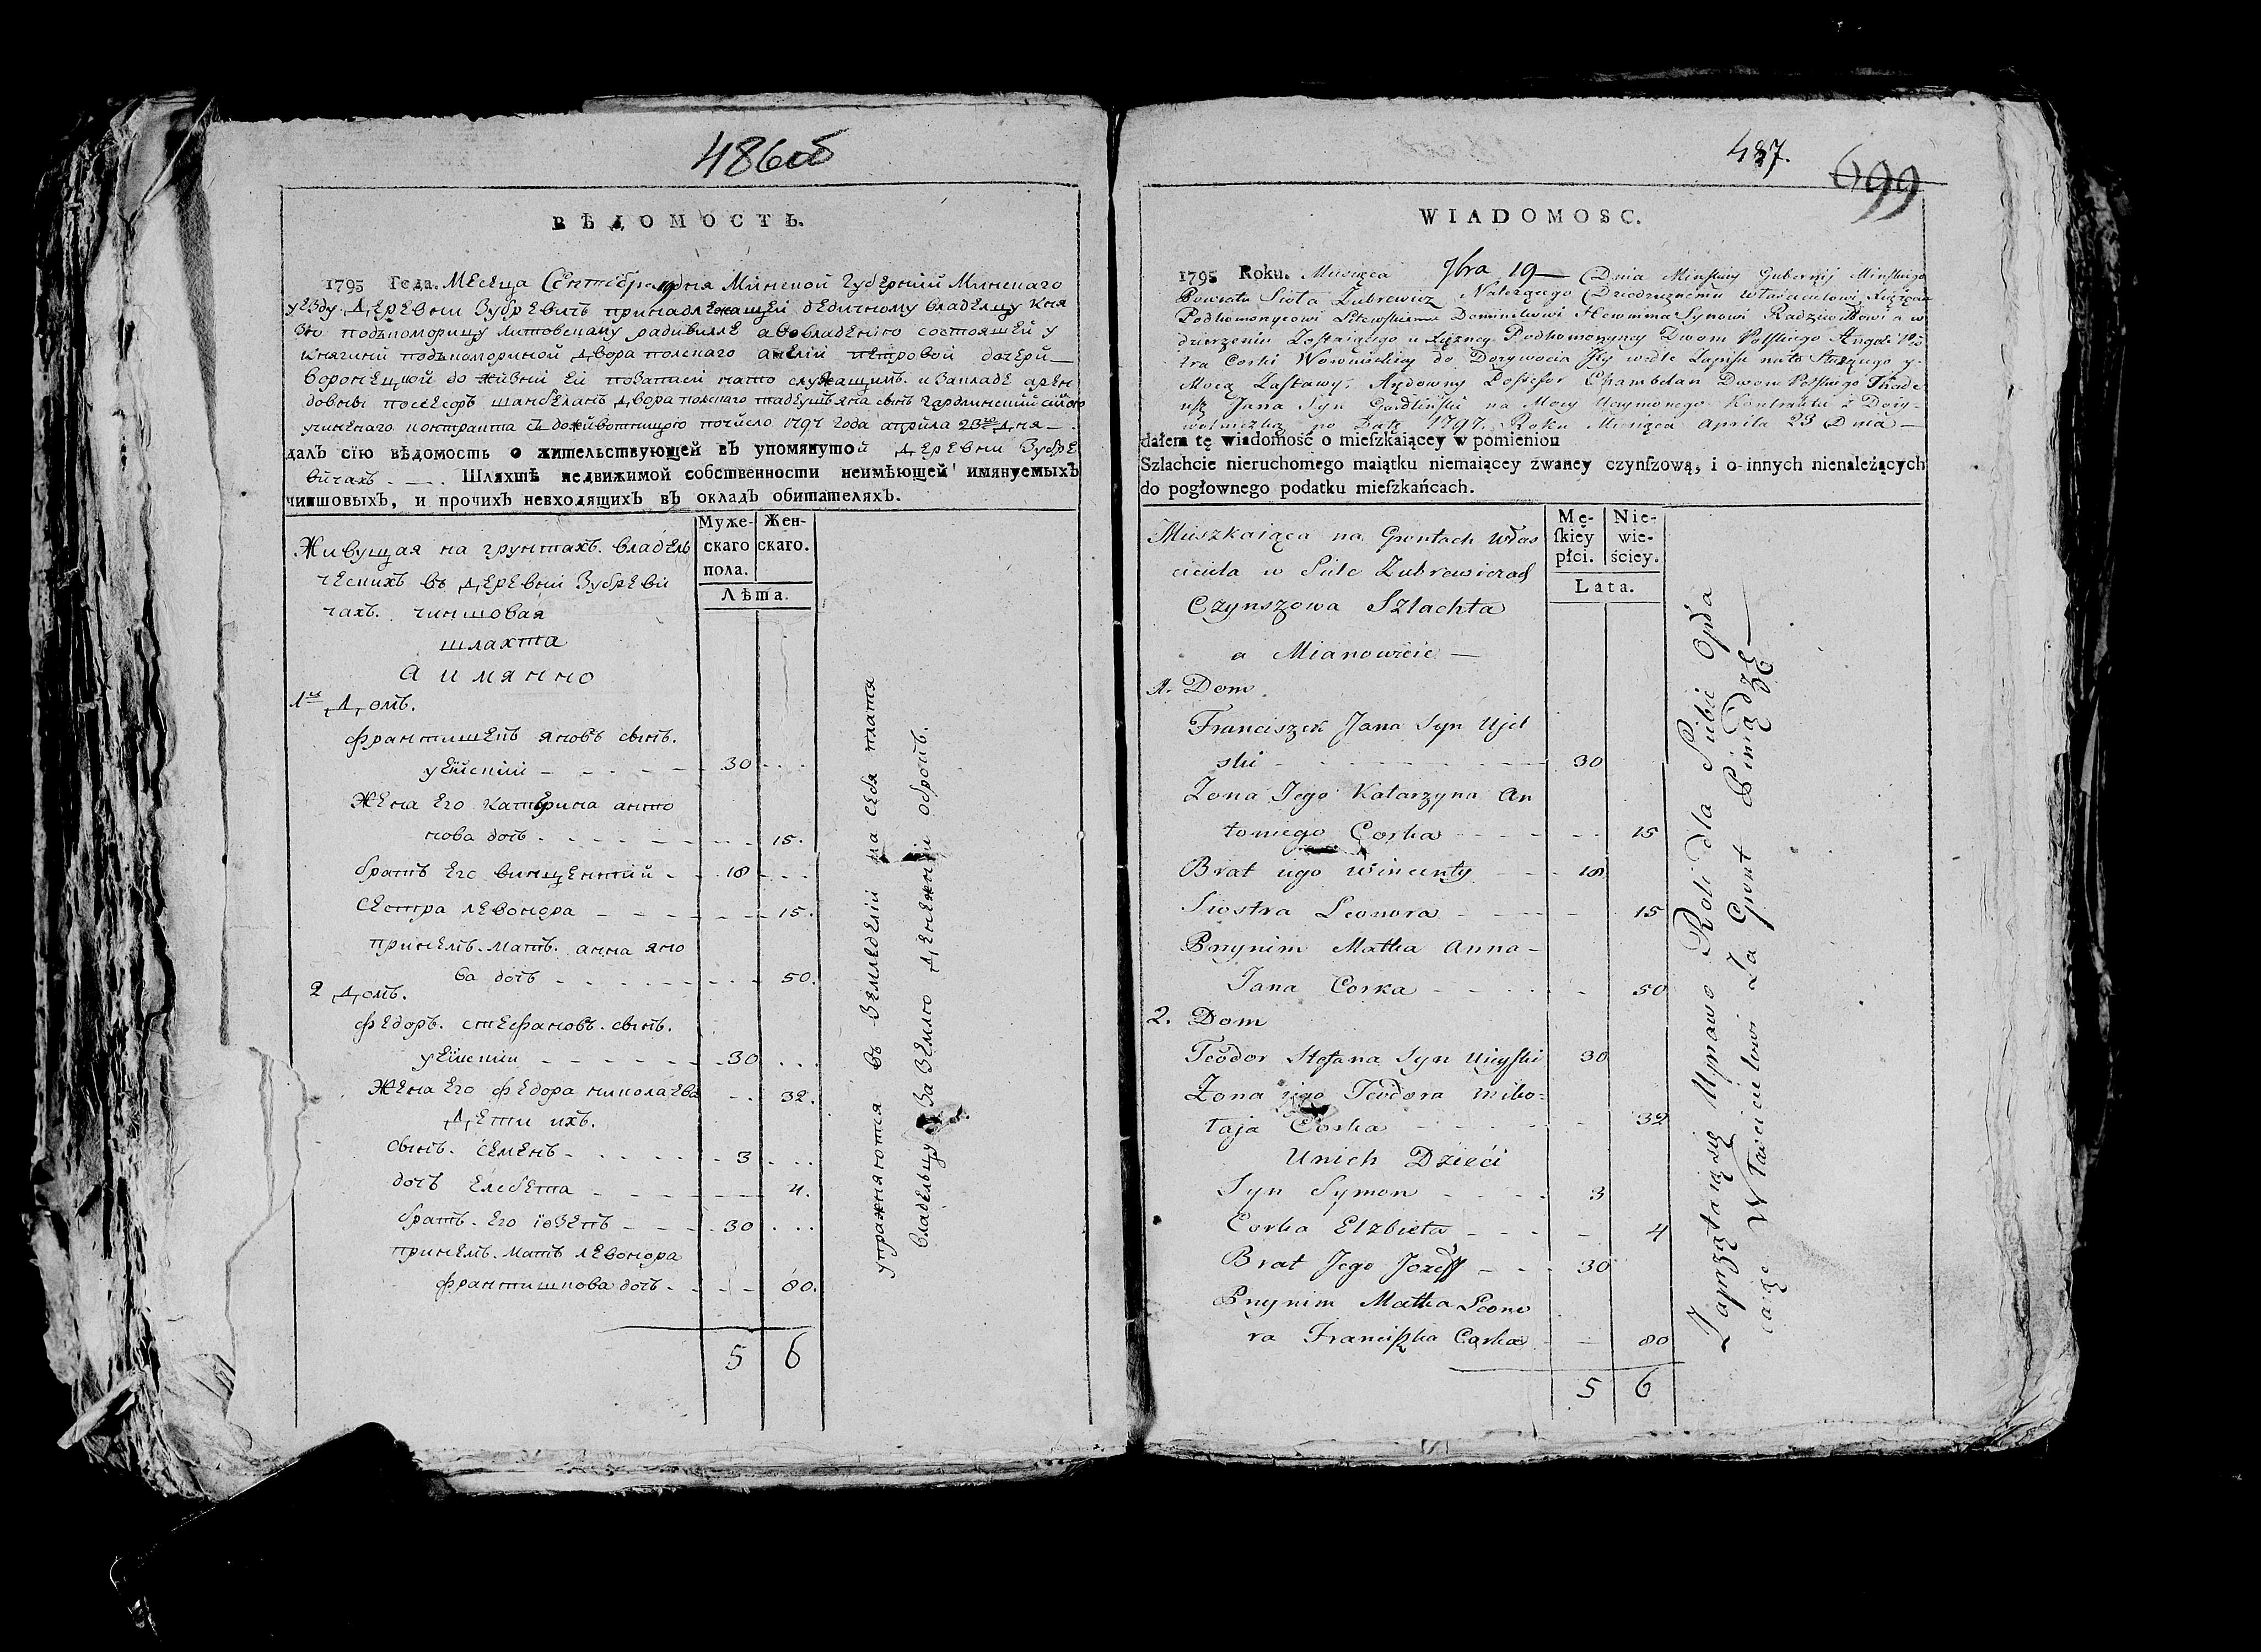 486об
ВѢДОМОСТЬ.
1795 Года. Месеца Сентебра 19 дня Минской Губерніи Минскаго
уезду Деревни Зубревичъ принадлежащей дедичному владелцу Кня
зю подъкоморищу литовскому радивилле а во владенію состоящей у
княгини подъкомориной двора полскаго анелiи петровой дочери
воронецкой до живни ей позаписи нато служащимъ. и взакладе арен
довны посесоръ шанбеланъ двора полскаго тадеушъ яна сынъ
учиненаго контракта съ доживотницою почисло 1797 Года априла 23го дня —
далъ сїю вѣдомость о жительствующей въ упомянутой Деревни Зубре
вичахъ — . Шляхтѣ недвижимой собственности неимѣющей имянуемыхъ
чиншовыхъ, и прочихъ невходящихъ въ окладъ обитателяхъ.
Муже-
скаго
пола.
Жен-
скаго.
Лѣта.
Живущая на грунтахъ. владель
ческихъ въ Деревни Зубреви
чахъ. чиншовая
шляхта
а имянно
1й Домъ.
франтишекъ яновъ сынъ.
уейскій — 30
Жена его катерина анто
нова дочъ 15.
братъ его винцентий 18
Сестра левонора 15.
принемъ. матъ. анна яно
ва дочъ 50.
2 Домъ.
федоръ. стефановъ. сынъ.
уейскии 30
Жена его федора николаева 32.
Дети ихъ.
сынъ. семенъ 3
дочъ елсбета 4.
братъ. его іозепъ 30
принемъ. матъ левонора
франтишкова дочъ 80.
5 6
упражняются въ земледелiи на себя платя
владельцу за землю денежни оброкъ.
487.
699
WIADOMOSC.
1795 Roku. Miesięca 7bra 19 — Dnia Minskiey Gubernij Minskiego
Powiatu Sioła Zubrewicz Należącego Dziedzicznemu Właścicielowi Xiążęciu
Podkomorycowi Litewskiemu Dominikowi Hieronima Synowi Radziwiłłowi a w
dzierżeniu Zostaiącego u Xiężney Podkomorzyney Dworu Polskiego Angeli Pio
tra Corki Woronieckiey do Dożywocia Jey wedle Zapisu na to Służącego y
Mocą Zastawy. Arędowny Possesor Chambelan Dworu Polskiego Thade
usz Jana Syn na Mocy Uczynionego Kontraktu z Doży-
wotniczką po Datę 1797. Roku Miesiąca Aprila 23 Dnia —
dałem tę wiadomość o mieſzkaiącey w pomienion
Szlachcie nieruchomego maiątku niemaiącey zwaney czynſzową, i o innych nienależących
do pogłownego podatku mieſzkańcach.
Mę-
ſkiey
płci.
Nie-
wie-
ściey.
Lata.
Mieszkaiąca na Grontach Włas
ciciela w Siele Zubrewiczach
Czynszowa Szlachta
a Mianowicie —
1. Dom.
Franciszek Jana Syn Ujel
ski 30
Zona Jego Katarzyna An
toniego Corka 15
Brat iego Wincenty 18
Siostra Leonora 15
Przynim Matka Anna
Jana Corka 50
2. Dom
Teodor Stefana Syn Uieyski 30
Zona iego Teodora Miko
łaja Corka 32
Unich Dzieci
Syn Symon 3
Corka Elzbieta 4
Brat Jego Jozeff 30
Przynim Matka Leono
ra Franciszka Corka 80
5 6
Zaprzątaią się Uprawo Roli dla Siebie Opła
caiąc Włascicielowi Za Gront Pieniądze